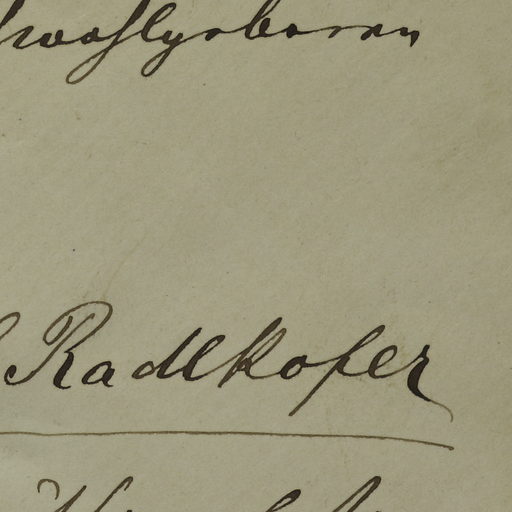 hwohlgeboren
Radlkofer